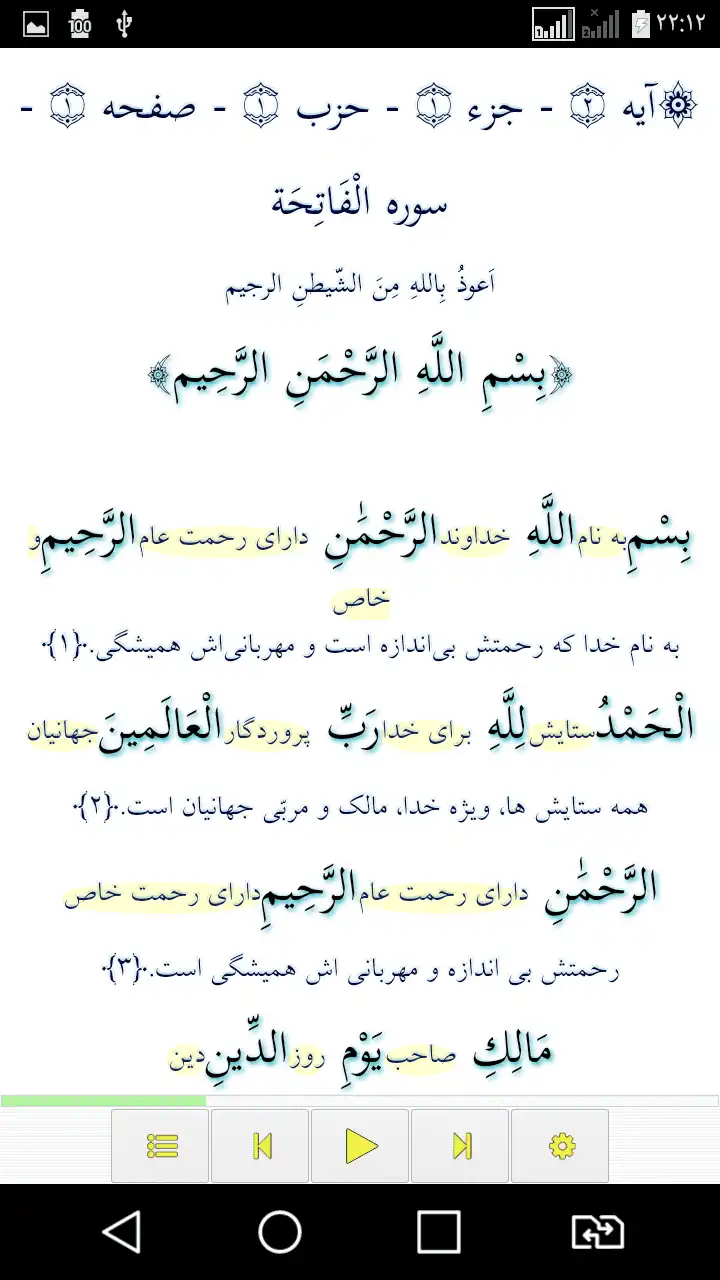 100 1 2 ۲۲:۱۲
آیه ۲ - جزء ۱ - حزب ۱ - صفحه ۱ -
سوره الْفَاتِحَة
اَعوذُ بِاللهِ مِنَ الشّیطنِ الرجیم
﴿بِسْمِ اللَّهِ الرَّحْمَنِ الرَّحِيم﴾
بِسْمِ به نام اللَّهِ خداوند الرَّحْمَٰنِ دارای رحمت عام الرَّحِيمِ و
خاص
به نام خدا که رحمتش بی‌اندازه است و مهربانی‌اش همیشگی.·{۱}·
الْحَمْدُ ستایش لِلَّهِ برای خدا رَبِّ پروردگار الْعَالَمِينَ جهانیان
همه ستایش ها، ویژه خدا، مالک و مربّی جهانیان است.·{۲}·
الرَّحْمَٰنِ دارای رحمت عام الرَّحِيمِ دارای رحمت خاص
رحمتش بی اندازه و مهربانی اش همیشگی است.·{۳}·
مَالِكِ صاحب يَوْمِ روز الدِّينِ دین